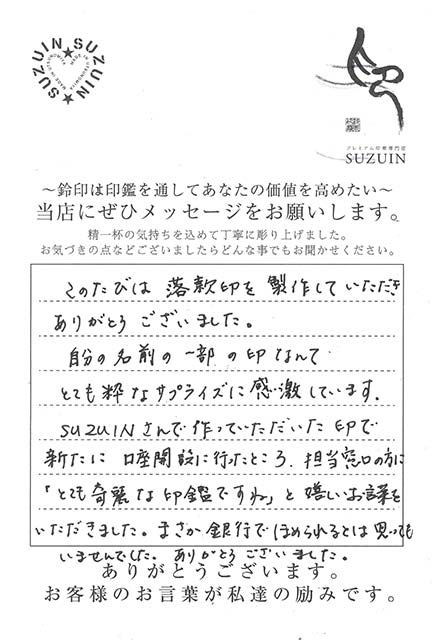 SUZUIN★SUZUIN★
プレミアム印章専門店
SUZUIN
〜鈴印は印鑑を通してあなたの価値を高めたい〜
当店にぜひメッセージをお願いします。
精一杯の気持ちを込めて丁寧に彫り上げました。
お気づきの点などございましたらどんな事でもお聞かせください。
このたびは 落款印を 製作して いただき
ありがとう ございました。
自分の名前の一部の印なんて
とても粋なサプライズに感激しています。
SUZUINさんで作っていただいた印で
新たに 口座開設に行ったところ、担当窓口の方に
「とても奇麗な印鑑ですね」と嬉しいお言葉を
いただきました。まさか銀行でほめられるとは思っても
いませんでした。ありがとうございました。
ありがとうございます。
お客様のお言葉が私達の励みです。